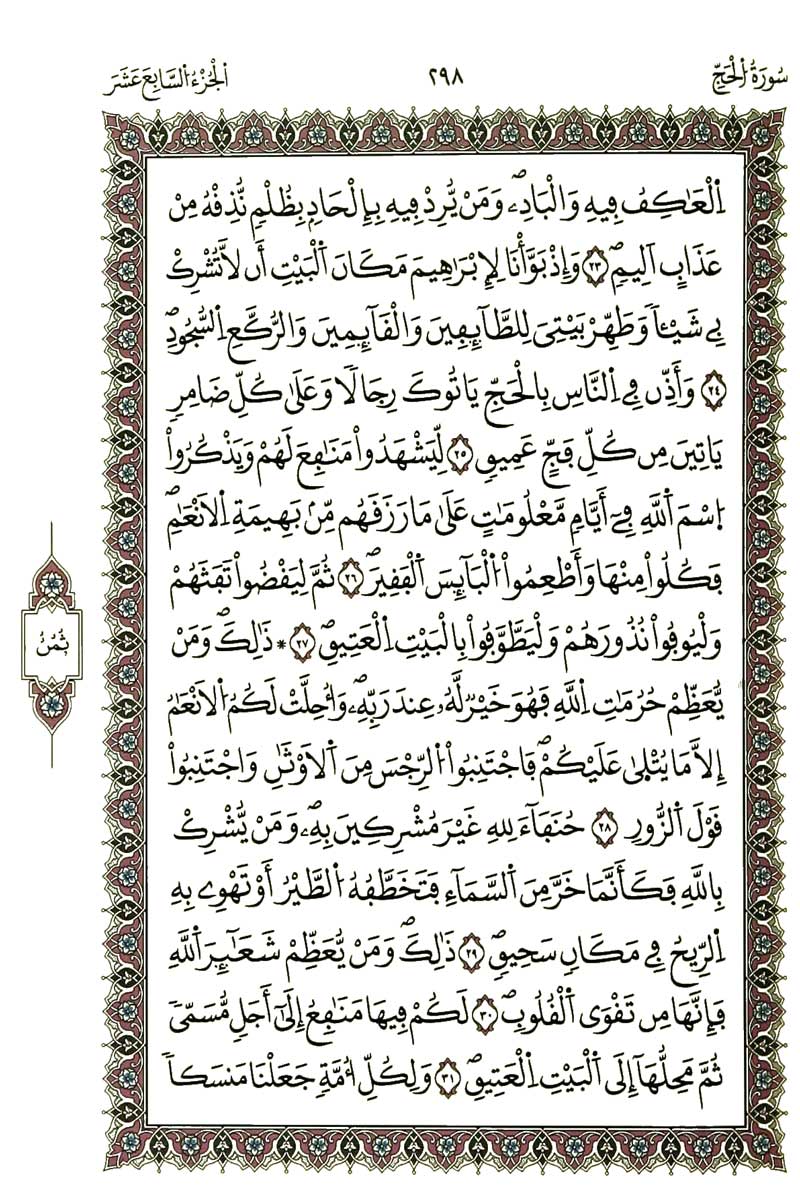 سُورَةُ الْحَجِّ
٢٩٨
الْجُزْءُ السَّابِعَ عَشَرَ
اَ۬لْعَٰكِفُ فِيهِ وَالْبَادِۦۖ وَمَنْ يُّرِدْ فِيهِ بِإِلْحَادِۢ بِظُلْمٖ نُّذِقْهُ مِنْ
عَذَابٍ اَلِيمٖۖ ٢٣ وَإِذْ بَوَّأْنَا لِإِبْرَٰهِيمَ مَكَانَ اَ۬لْبَيْتِ أَن لَّا تُشْرِكْ
بِے شَيْـٔاٗ وَطَهِّرْ بَيْتِيَ لِلطَّآئِفِينَ وَالْقَآئِمِينَ وَالرُّكَّعِ اِ۬لسُّجُودِۖ
٢٤ وَأَذِّن فِے اِ۬لنَّاسِ بِالْحَجِّ يَاتُوكَ رِجَالاٗ وَعَلَىٰ كُلِّ ضَامِرٖ
يَاتِينَ مِن كُلِّ فَجٍّ عَمِيقٖ ٢٥ لِّيَشْهَدُواْ مَنَٰفِعَ لَهُمْ وَيَذْكُرُواْ
اُ۪سْمَ اَ۬للَّهِ فِےٓ أَيَّامٖ مَّعْلُومَٰتٍ عَلَىٰ مَا رَزَقَهُم مِّنۢ بَهِيمَةِ اِ۬لَانْعَٰمِۖ
فَكُلُواْ مِنْهَا وَأَطْعِمُواْ اُ۬لْبَآئِسَ اَ۬لْفَقِيرَۖ ٢٦ ثُمَّ لْيَقْضُواْ تَفَثَهُمْ
وَلْيُوفُواْ نُذُورَهُمْ وَلْيَطَّوَّفُواْ بِالْبَيْتِ اِ۬لْعَتِيقِۖ ٢٧ * ذَٰلِكَۖ وَمَنْ
يُّعَظِّمْ حُرُمَٰتِ اِ۬للَّهِ فَهُوَ خَيْرٞ لَّهُۥ عِندَ رَبِّهِۦۖ وَأُحِلَّتْ لَكُمُ اُ۬لَانْعَٰمُ
إِلَّا مَا يُتْلَىٰ عَلَيْكُمْۖ فَاجْتَنِبُواْ اُ۬لرِّجْسَ مِنَ اَ۬لَاوْثَٰنِ وَاجْتَنِبُواْ
قَوْلَ اَ۬لزُّورِ ٢٨ حُنَفَآءَ لِلهِ غَيْرَ مُشْرِكِينَ بِهِۦۖ وَمَنْ يُّشْرِكْ
بِاللَّهِ فَكَأَنَّمَا خَرَّ مِنَ اَ۬لسَّمَآءِ فَتَخَطَّفُهُ اُ۬لطَّيْرُ أَوْ تَهْوِے بِهِ
اِ۬لرِّيحُ فِے مَكَانٖ سَحِيقٖۖ ٢٩ ذَٰلِكَۖ وَمَنْ يُّعَظِّمْ شَعَٰٓئِرَ اَ۬للَّهِ
فَإِنَّهَا مِن تَقْوَى اَ۬لْقُلُوبِۖ ٣٠ لَكُمْ فِيهَا مَنَٰفِعُ إِلَىٰٓ أَجَلٖ مُّسَمّيٗ
ثُمَّ مَحِلُّهَآ إِلَى اَ۬لْبَيْتِ اِ۬لْعَتِيقِۖ ٣١ وَلِكُلِّ أُمَّةٖ جَعَلْنَا مَنسَكاٗ
ثُمُنُ